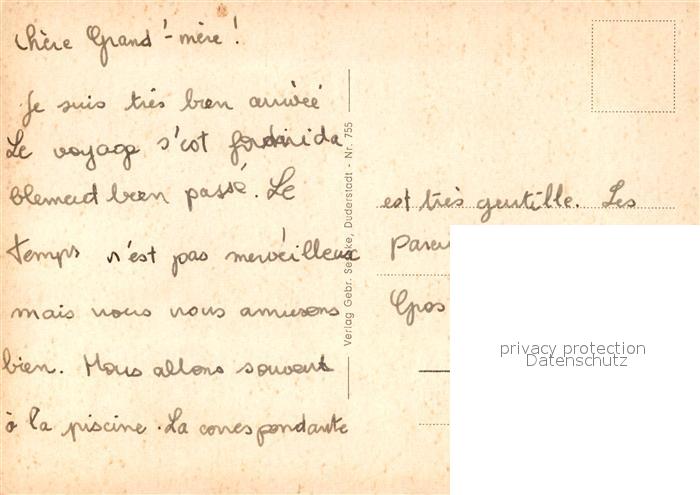 Chère Grand'-mère!
Je suis très bien arrivée
Le voyage s'est
blement bien passé. Le
Temps n'est pas merveilleux
mais nous nous amusons
bien. Nous allons souvent
à la piscine. La correspondante
Verlag Gebr. Duderstadt - Nr. 755
est très gentille. Les
Gros
privacy protection
Datenschutz